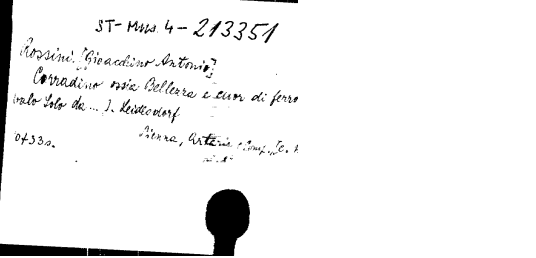 ST-Mus. 4-213351
Rossini. [Gioacchino Antonio]
Corradino ossia Bellezza e cuor di ferro
Solo da... J. Leidesdorf
Vienna, Artaria e Comp.,